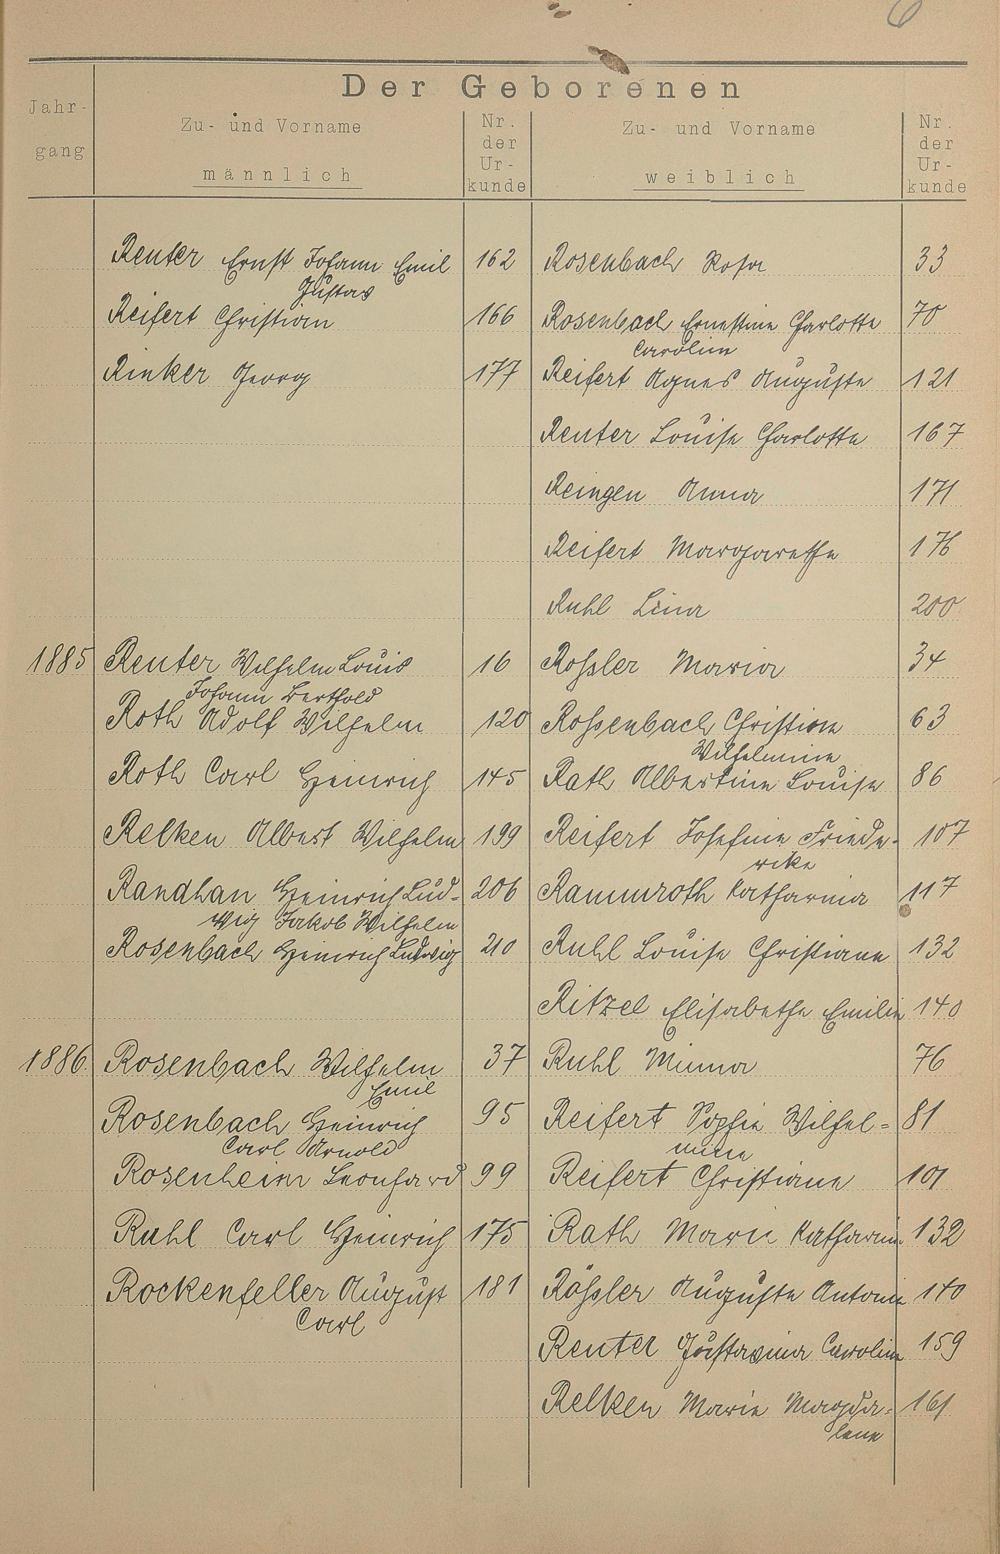 6
Der Geborenen
Jahr-
gang
Zu- und Vorname
männlich
Nr.
der
Ur-
kunde
Zu- und Vorname
weiblich
Nr.
der
Ur-
kunde
Renter Ernst Johann Emil 162 Rosenbach Rosa 33
Gustav
Reifert Christian 166 Rosenbach Ernestine Charlotte 70
Caroline
Rinker Georg 177 Reifert Agnes Auguste 121
Renter Louise Charlotte 167
Reingen Anna 171
Reifert Margarethe 176
Ruhl Lina 200
1885 Renter Wilhelm Louis 16 Roßler Maria 34
Johann Berthold
Roth Adolf Wilhelm 120 Roßenbach Christiane 63
Wilhelmine
Roth Carl Heinrich 145 Rath Albertine Louise 86
Relken Albert Wilhelm 199 Reifert Josefine Friede- 107
rike
Randhan Heinrich Lud- 206 Rammroth Katharina 117
wig Jakob Wilhelm
Rosenbach Heinrich Ludwig 210 Ruhl Louise Christiane 132
Ritzel Elisabethe Emilie 140
1886 Rosenbach Wilhelm 37 Ruhl Minna 76
Emil
Rosenbach Heinrich 95 Reifert Sophie Wilhel= 81
Carl Arnold mine
Rosenheim Leonhard 99 Reifert Christiane 101
Ruhl Carl Heinrich 175 Rath Marie Katharine 132
Rockenfeller August 181 Rößler Auguste Antonie 140
Carl
Renter Gustavina Caroline 159
Relken Marie Magda= 161
lene